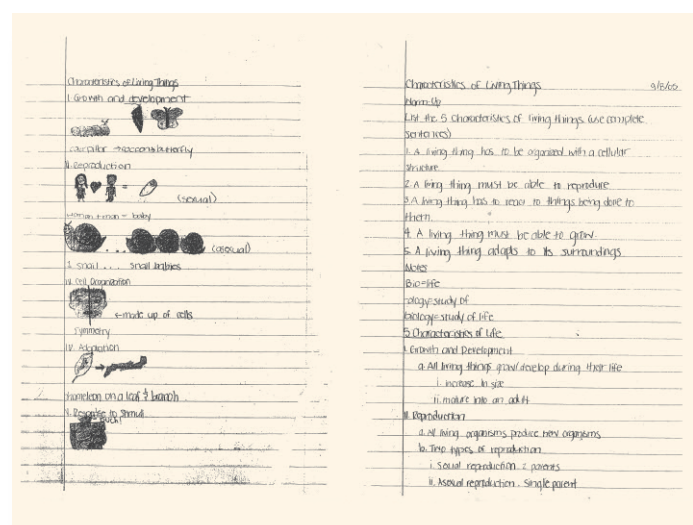 Characteristics of Living Things
I. Growth and development
caterpillar → cocoon → butterfly
II. Reproduction
(sexual)
woman + man = baby
(asexual)
1 snail .... snail babies
IV. Cell Organization
← made up of cells
symmetry
IV. Adaptation
chameleon on a leaf & branch
V. Response to Stimuli
ouch!
Characteristics of Living Things 9/8/00
Warm-Up
List the 5 characteristics of living things (use complete
sentences)
1. A living thing has to be organized with a cellular
structure
2. A living thing must be able to reproduce
3. A living thing has to react to things being done to
them.
4. A living thing must be able to grow.
5. A living thing adapts to its surroundings
Notes
Bio=life
ology=study of
biology=study of life
5 Characteristics of Life
I. Growth and Development
a. All living things grow/develop during their life
i. increase in size
ii. mature into an adult
II. Reproduction
a. All living organisms produce new organisms
b. Two types of reproduction
i. Sexual reproduction: 2 parents
ii. Asexual reproduction: Single parent